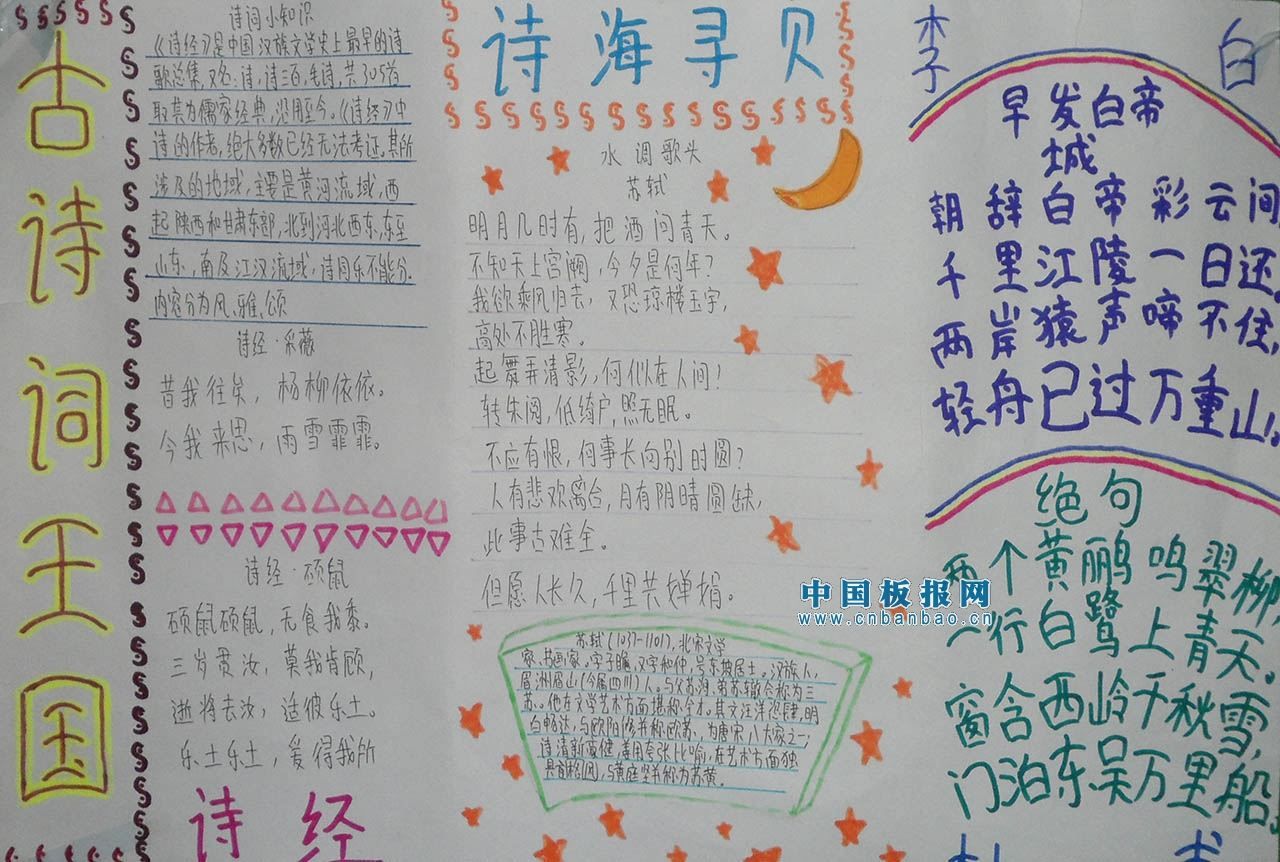 古诗词王国
诗词小知识
《诗经》是中国汉族文学史上最早的诗
歌总集,又名:诗,诗三百,毛诗,共305首
取其为儒家经典,沿用至今。《诗经》中
诗的作者,绝大多数已经无法考证。其所
涉及的地域,主要是黄河流域,西
起陕西和甘肃东部,北到河北西东,东至
山东,南及江汉流域,诗同乐不能分.
内容分为风、雅、颂
诗经·采薇
昔我往矣,杨柳依依。
今我来思,雨雪霏霏。
诗经·硕鼠
硕鼠硕鼠,无食我黍。
三岁贯汝,莫我肯顾,
逝将去汝,适彼乐土。
乐土乐土,爰得我所
诗经
诗海寻贝
水调歌头
苏轼
明月几时有,把酒问青天。
不知天上宫阙,今夕是何年?
我欲乘风归去,又恐琼楼玉宇,
高处不胜寒。
起舞弄清影,何似在人间!
转朱阁,低绮户,照无眠。
不应有恨,何事长向别时圆?
人有悲欢离合,月有阴晴圆缺,
此事古难全。
但愿人长久,千里共婵娟。
苏轼(1037-1101),北宋文学
家、书画家。字子瞻,又字和仲,号东坡居士。汉族人,
眉洲眉山(今属四川)人。与父苏洵,弟苏辙合称为三
苏。他在文学艺术方面堪称全才。其文汪洋恣肆,明
白畅达,与欧阳修并称欧苏,为唐宋八大家之一;
诗清新豪健,善用夸张比喻,在艺术方面独
具风格,与黄庭坚并称为苏黄。
李白
早发白帝
城
朝辞白帝彩云间
千里江陵一日还.
两岸猿声啼不住,
轻舟已过万重山!
绝句
两个黄鹂鸣翠柳,
一行白鹭上青天。
窗含西岭千秋雪,
门泊东吴万里船。
中国板报网
www.cnbanbao.cn